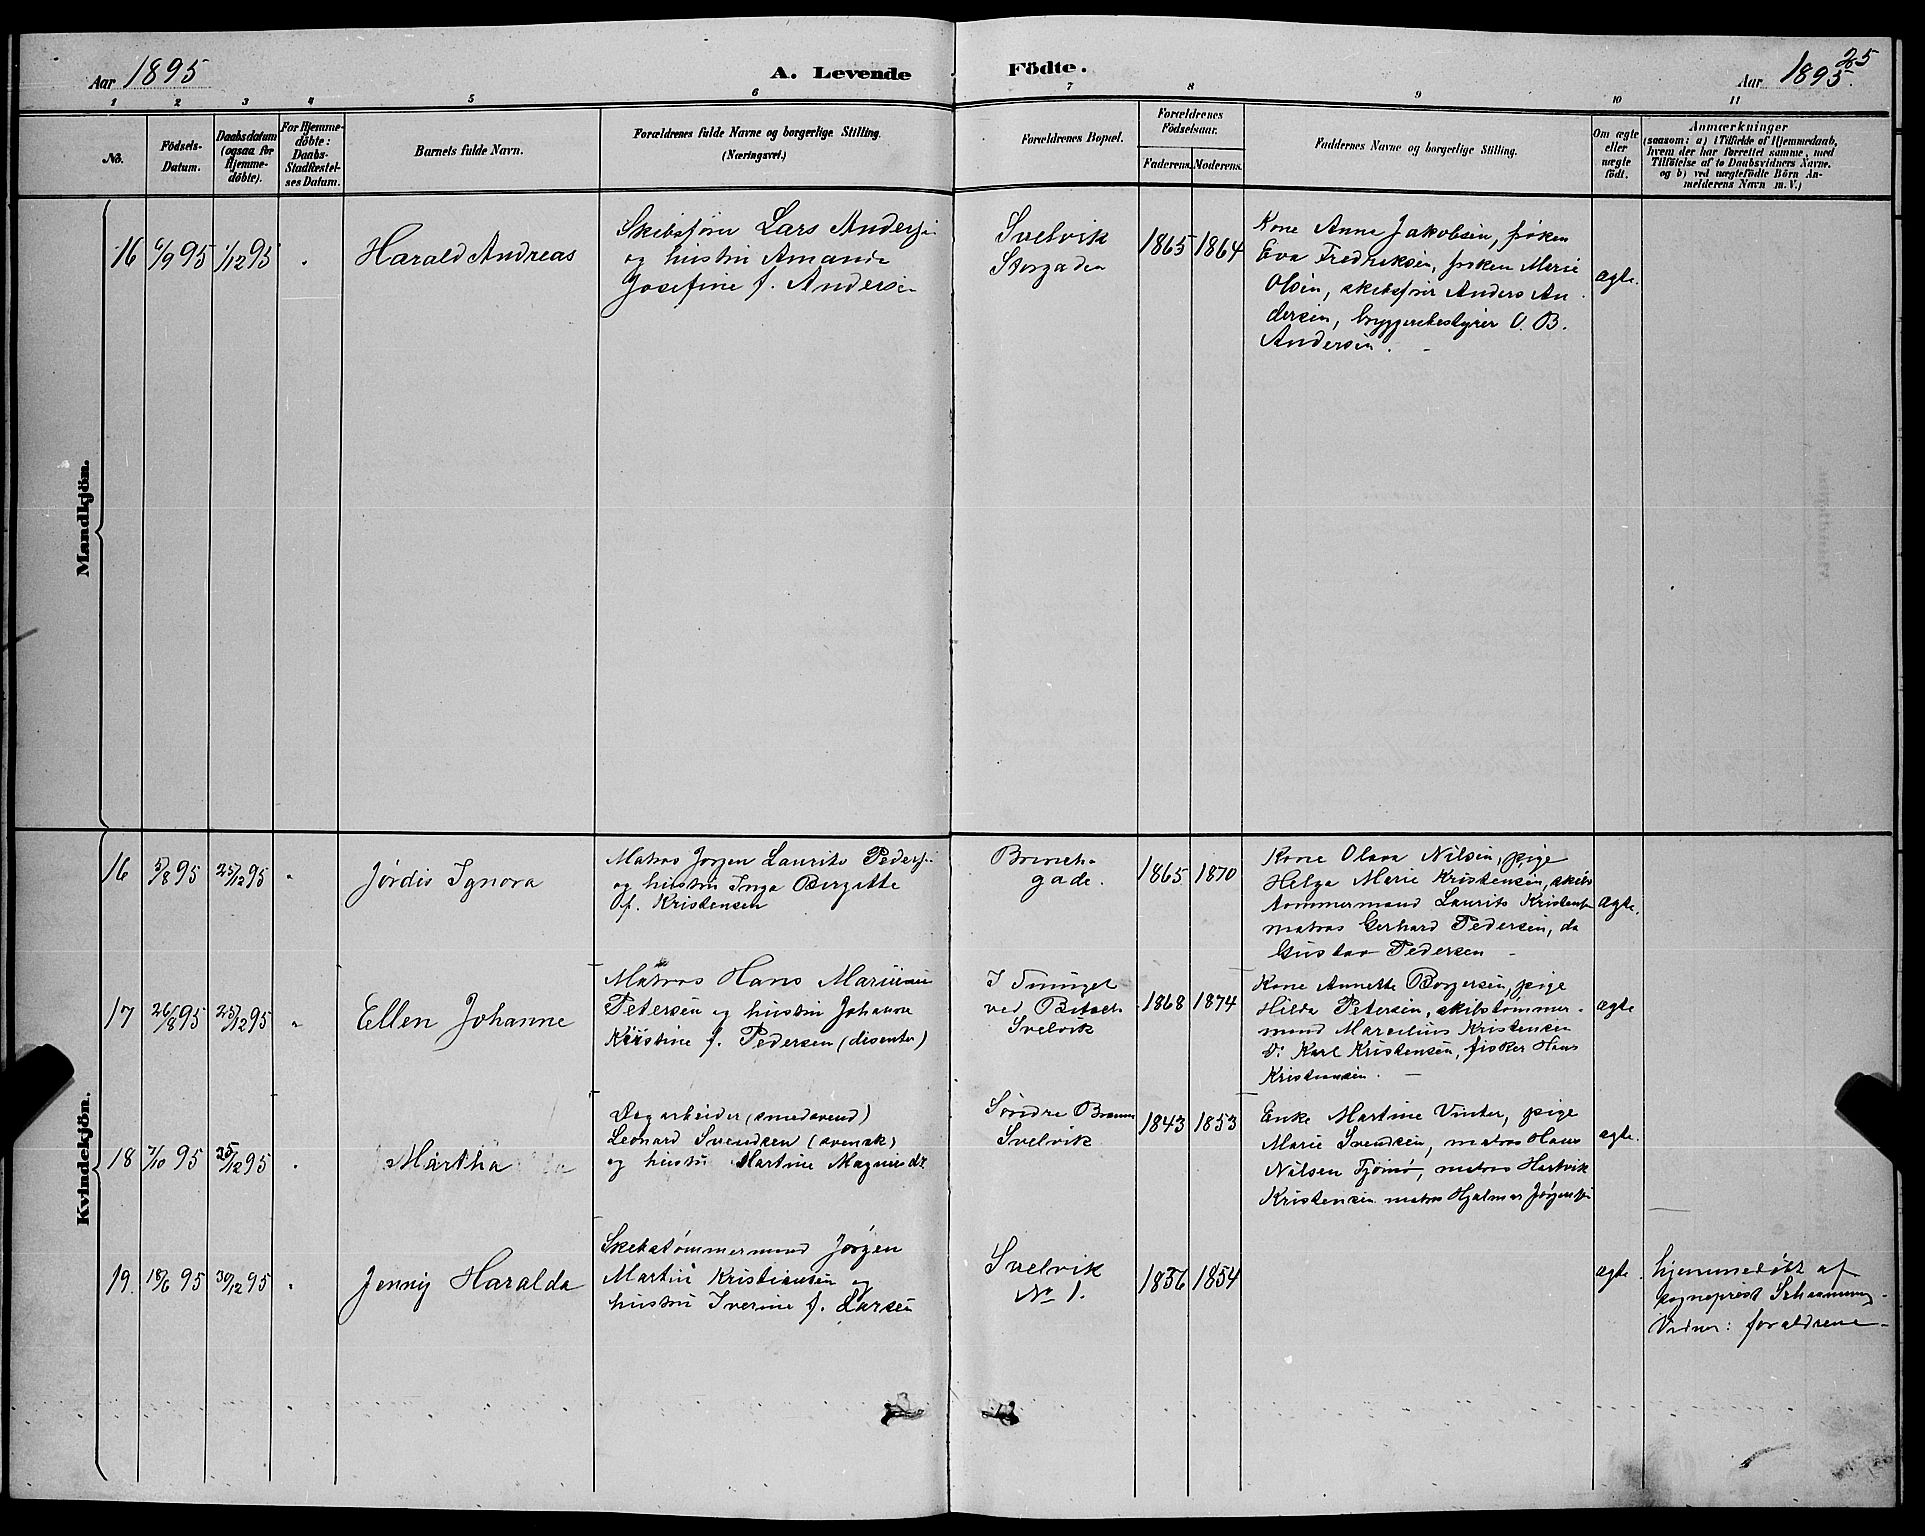 Aar 1895
A. Levende Födte.
Aar 1895.
25
1 2 3 4 5 6 7 8 9 10 11
No.
Födsels-
Datum.
Daabsdatum
(ogsaa for
Hjemme-
döbte).
For Hjemme-
döbte:
Daabs-
Stadfæstel-
ses Datum.
Barnets fulde Navn.
Forældrenes fulde Navne og borgerlige Stilling.
(Næringsvei.)
Forældrenes Bopæl.
Forældrenes
Födselsaar.
Faderens. Moderens.
Faddernes Navne og borgerlige Stilling.
Om ægte
eller
uægte
födt.
Anmærkninger
(saasom: a) i Tilfælde af Hjemmedaab,
hvem der har forrettet samme, med
Tilföielse af to Daabsvidners Navne,
og b) ved uægtefödte Börn An-
melderens Navn m. V.)
Mandkjön.
16 6/9 95 1/12 95
Harald Andreas
Skibsfører Lars Andersen
og hustru Amanda
Josefine f. Andersen
Svelvik
Storgaden
1865 1864
Kone Anna Jakobsen, frøken
Eva Fredriksen, frøken Marie
Olsen, skibsfører Anders An
dersen, bryggeribestyrer O. B.
Andersen.
ægte.
Kvindekjön.
16 5/8 95 25/12 95 "
Jørdis Ignora
Matros Jørgen Laurits Pedersen
og hustru Inga Birgitte
f. Kristensen
gade.
1865 1870
Kone Olava Nilsen, pige
Helga Marie Kristensen, skibs
tømmermand Laurits Kristensen
matros Gerhard Pedersen, do
Gustav Pedersen
ægte.
17 26/8 95 25/12 95 "
Ellen Johanne
Matros Hans Marinius
Petersen og hustru Johanne
Kristine f. Pedersen (disenter)
I
ved
Svelvik
1868 1874
Kone Annette Borgersen, pige
Hilda Petersen, skibstømmer-
mand Marcelius Kristensen
D: Karl Kristensen, fisker Hans
Kristiansen.
ægte
18 7/10 95 25/12 95
Martha
Dagarbeider (smedsvend)
Leonard Svendsen (svensk)
og hustru Martine Magnusdt
Søndre
Svelvik
1843 1853
Enke Martine Vinter, pige
Marie Svendsen, matros Hans
Nilsen Tjømø, matros Hartvik
Kristensen matros Hjalmar Jørgensen
ægte.
19. 18/6 95 30/12 95
Jenny Haralda
Skibstømmermand Jørgen
Martin Kristiansen og
hustru Iverine f. Larsen
Svelvik
No 1.
1856 1854
ægte.
hjemmedøbt af
sogneprest
Vidner: forældrene.